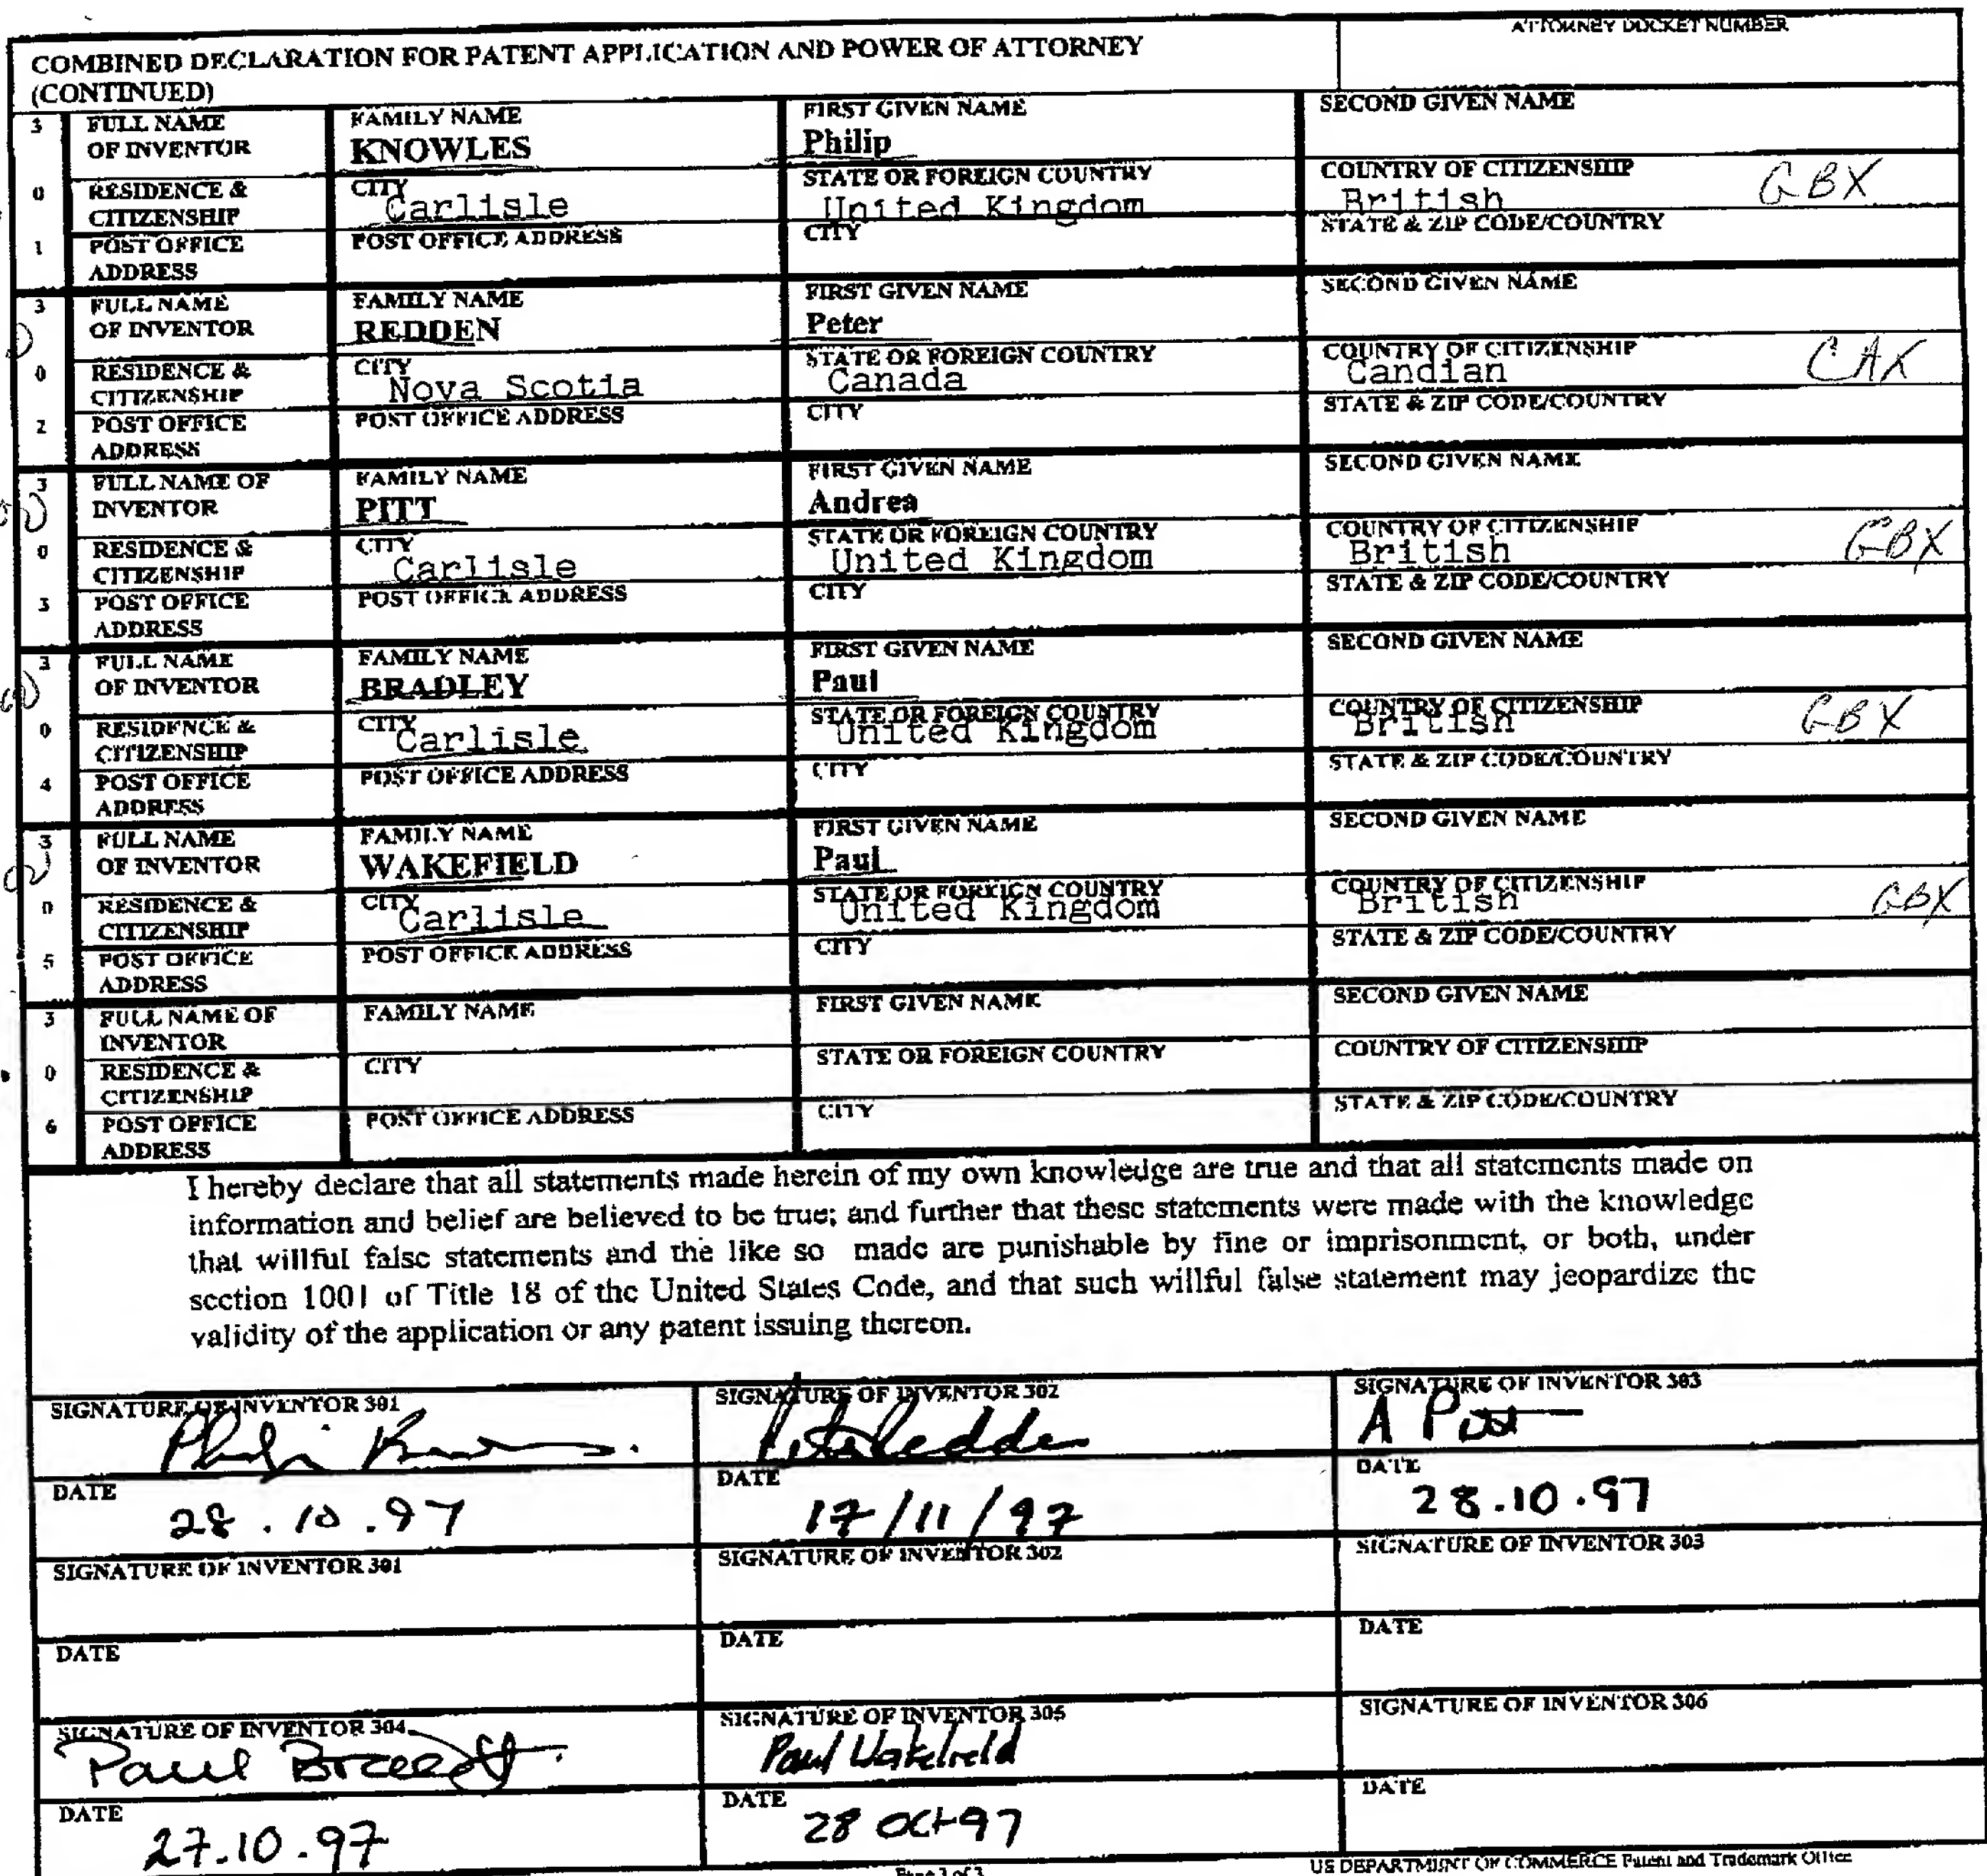 ATTORNEY DOCKET NUMBER
COMBINED DECLARATION FOR PATENT APPLICATION AND POWER OF ATTORNEY
(CONTINUED)
3 FULL NAME OF INVENTOR FAMILY NAME KNOWLES FIRST GIVEN NAME Philip SECOND GIVEN NAME
0 RESIDENCE & CITIZENSHIP CITY Carlisle STATE OR FOREIGN COUNTRY United Kingdom COUNTRY OF CITIZENSHIP British GBX
1 POST OFFICE ADDRESS POST OFFICE ADDRESS CITY STATE & ZIP CODE/COUNTRY
3 FULL NAME OF INVENTOR FAMILY NAME REDDEN FIRST GIVEN NAME Peter SECOND GIVEN NAME
0 RESIDENCE & CITIZENSHIP CITY Nova Scotia STATE OR FOREIGN COUNTRY Canada COUNTRY OF CITIZENSHIP Candian CAX
2 POST OFFICE ADDRESS POST OFFICE ADDRESS CITY STATE & ZIP CODE/COUNTRY
3 FULL NAME OF INVENTOR FAMILY NAME PITT FIRST GIVEN NAME Andrea SECOND GIVEN NAME
0 RESIDENCE & CITIZENSHIP CITY Carlisle STATE OR FOREIGN COUNTRY United Kingdom COUNTRY OF CITIZENSHIP British GBX
3 POST OFFICE ADDRESS POST OFFICE ADDRESS CITY STATE & ZIP CODE/COUNTRY
3 FULL NAME OF INVENTOR FAMILY NAME BRADLEY FIRST GIVEN NAME Paul SECOND GIVEN NAME
0 RESIDENCE & CITIZENSHIP CITY Carlisle STATE OR FOREIGN COUNTRY United Kingdom COUNTRY OF CITIZENSHIP British GBX
4 POST OFFICE ADDRESS POST OFFICE ADDRESS CITY STATE & ZIP CODE/COUNTRY
3 FULL NAME OF INVENTOR FAMILY NAME WAKEFIELD FIRST GIVEN NAME Paul SECOND GIVEN NAME
0 RESIDENCE & CITIZENSHIP CITY Carlisle STATE OR FOREIGN COUNTRY United Kingdom COUNTRY OF CITIZENSHIP British GBX
5 POST OFFICE ADDRESS POST OFFICE ADDRESS CITY STATE & ZIP CODE/COUNTRY
3 FULL NAME OF INVENTOR FAMILY NAME FIRST GIVEN NAME SECOND GIVEN NAME
0 RESIDENCE & CITIZENSHIP CITY STATE OR FOREIGN COUNTRY COUNTRY OF CITIZENSHIP
6 POST OFFICE ADDRESS POST OFFICE ADDRESS CITY STATE & ZIP CODE/COUNTRY
I hereby declare that all statements made herein of my own knowledge are true and that all statements made on
information and belief are believed to be true; and further that these statements were made with the knowledge
that willful false statements and the like so made are punishable by fine or imprisonment, or both, under
section 1001 of Title 18 of the United States Code, and that such willful false statement may jeopardize the
validity of the application or any patent issuing thereon.
SIGNATURE OF INVENTOR 301 SIGNATURE OF INVENTOR 302 SIGNATURE OF INVENTOR 303
Peter Redden A Pitt
DATE DATE DATE
28.10.97 17/11/97 28.10.97
SIGNATURE OF INVENTOR 301 SIGNATURE OF INVENTOR 302 SIGNATURE OF INVENTOR 303
DATE DATE DATE
SIGNATURE OF INVENTOR 304 SIGNATURE OF INVENTOR 305 SIGNATURE OF INVENTOR 306
Paul Paul Wakefield
DATE DATE DATE
27.10.97 28 Oct 97
Page 3 of 3 US DEPARTMENT OF COMMERCE Patent and Trademark Office